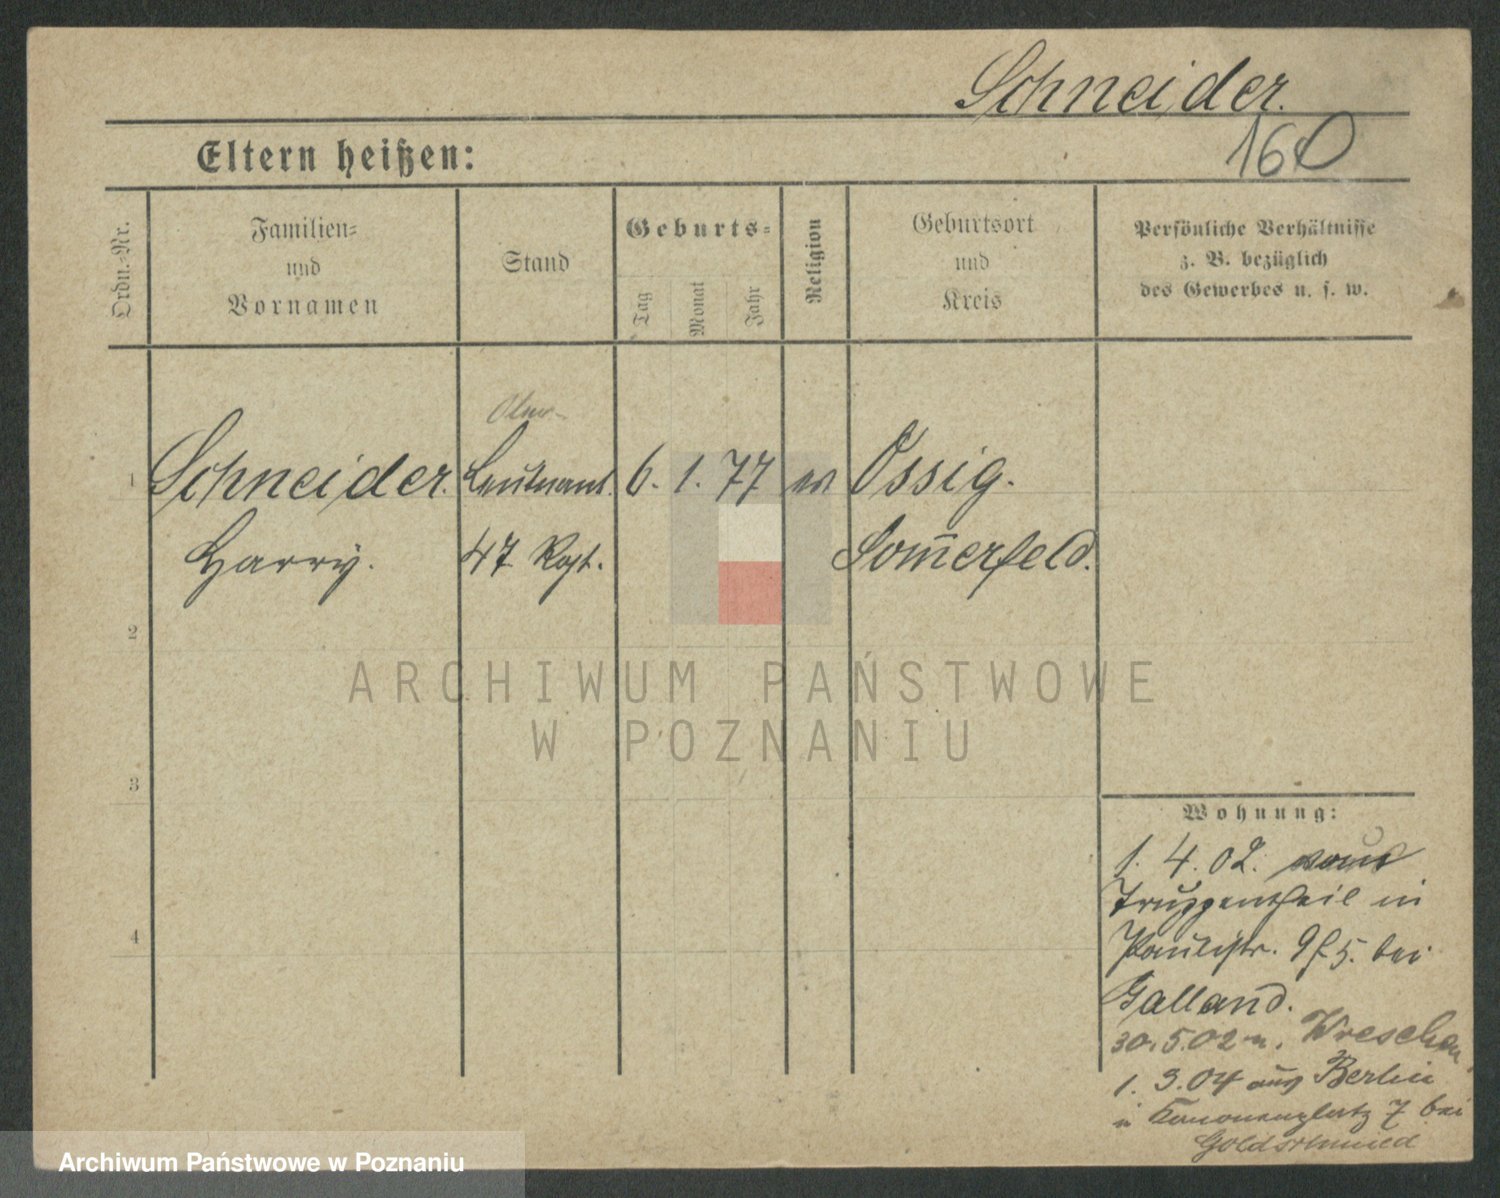 Schneider.
160
Eltern heißen:
Ordn.-Nr.
Familien-
und
Vornamen
Stand
Geburts-
Tag
Monat
Jahr
Religion
Geburtsort
und
Kreis
Persönliche Verhältnisse
z. B. bezüglich
des Gewerbes u. s. w.
1 Schneider. Leutnant. 6. 1. 77 ev Ossig.
Harry. 47 Rgt. Som̅erfeld.
2
3
4
ARCHIWUM PAŃSTWOWE
W POZNANIU
Wohnung:
1. 4. 02.
Truppentheil in
Paulistr. 9 f 5. bei
Galland.
30. 5. 02 n. Wreschen
1. 3. 04 aus Berlin
in Kanonenplatz 7 bei
Goldschmied
Archiwum Państwowe w Poznaniu